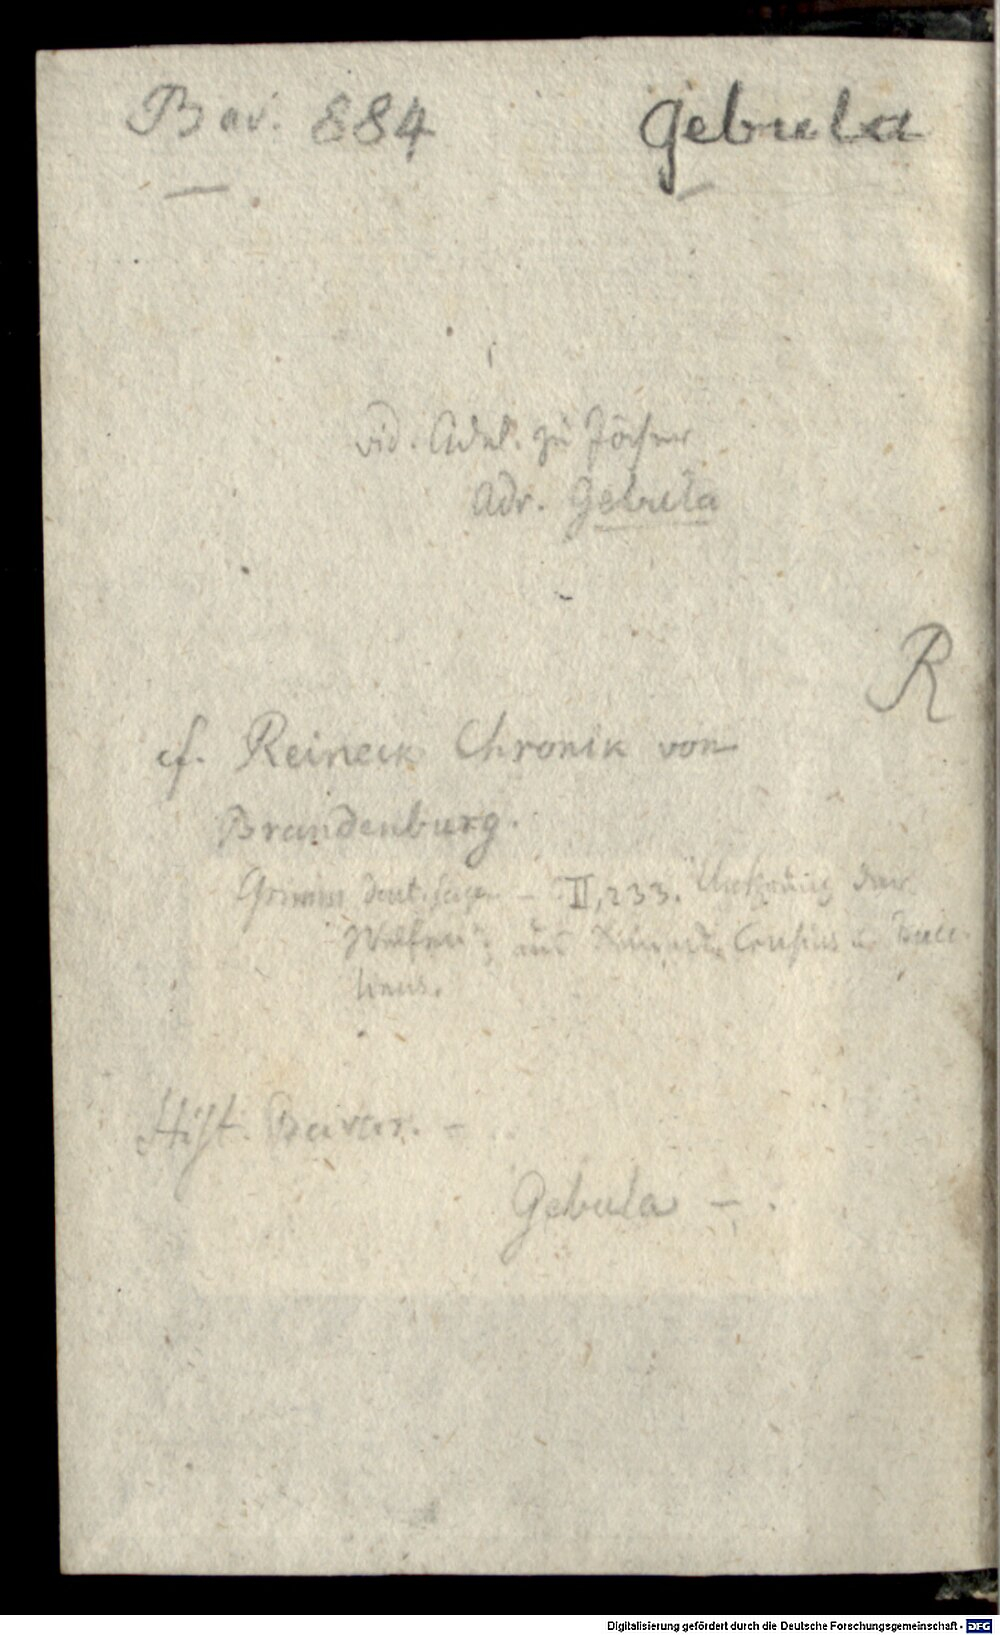 Bav. 884 Gebula
vid. Adel. zu Jöcher
Adr. Gebula
R
cf. Reineck Chronik von
Brandenburg.
Grimm deut. Sagen – II, 233. der
Welfen aus Crusius u. Buce-
linus.
Hist. Bavar. –
Gebula –.
Digitalisierung gefördert durch die Deutsche Forschungsgemeinschaft - DFG